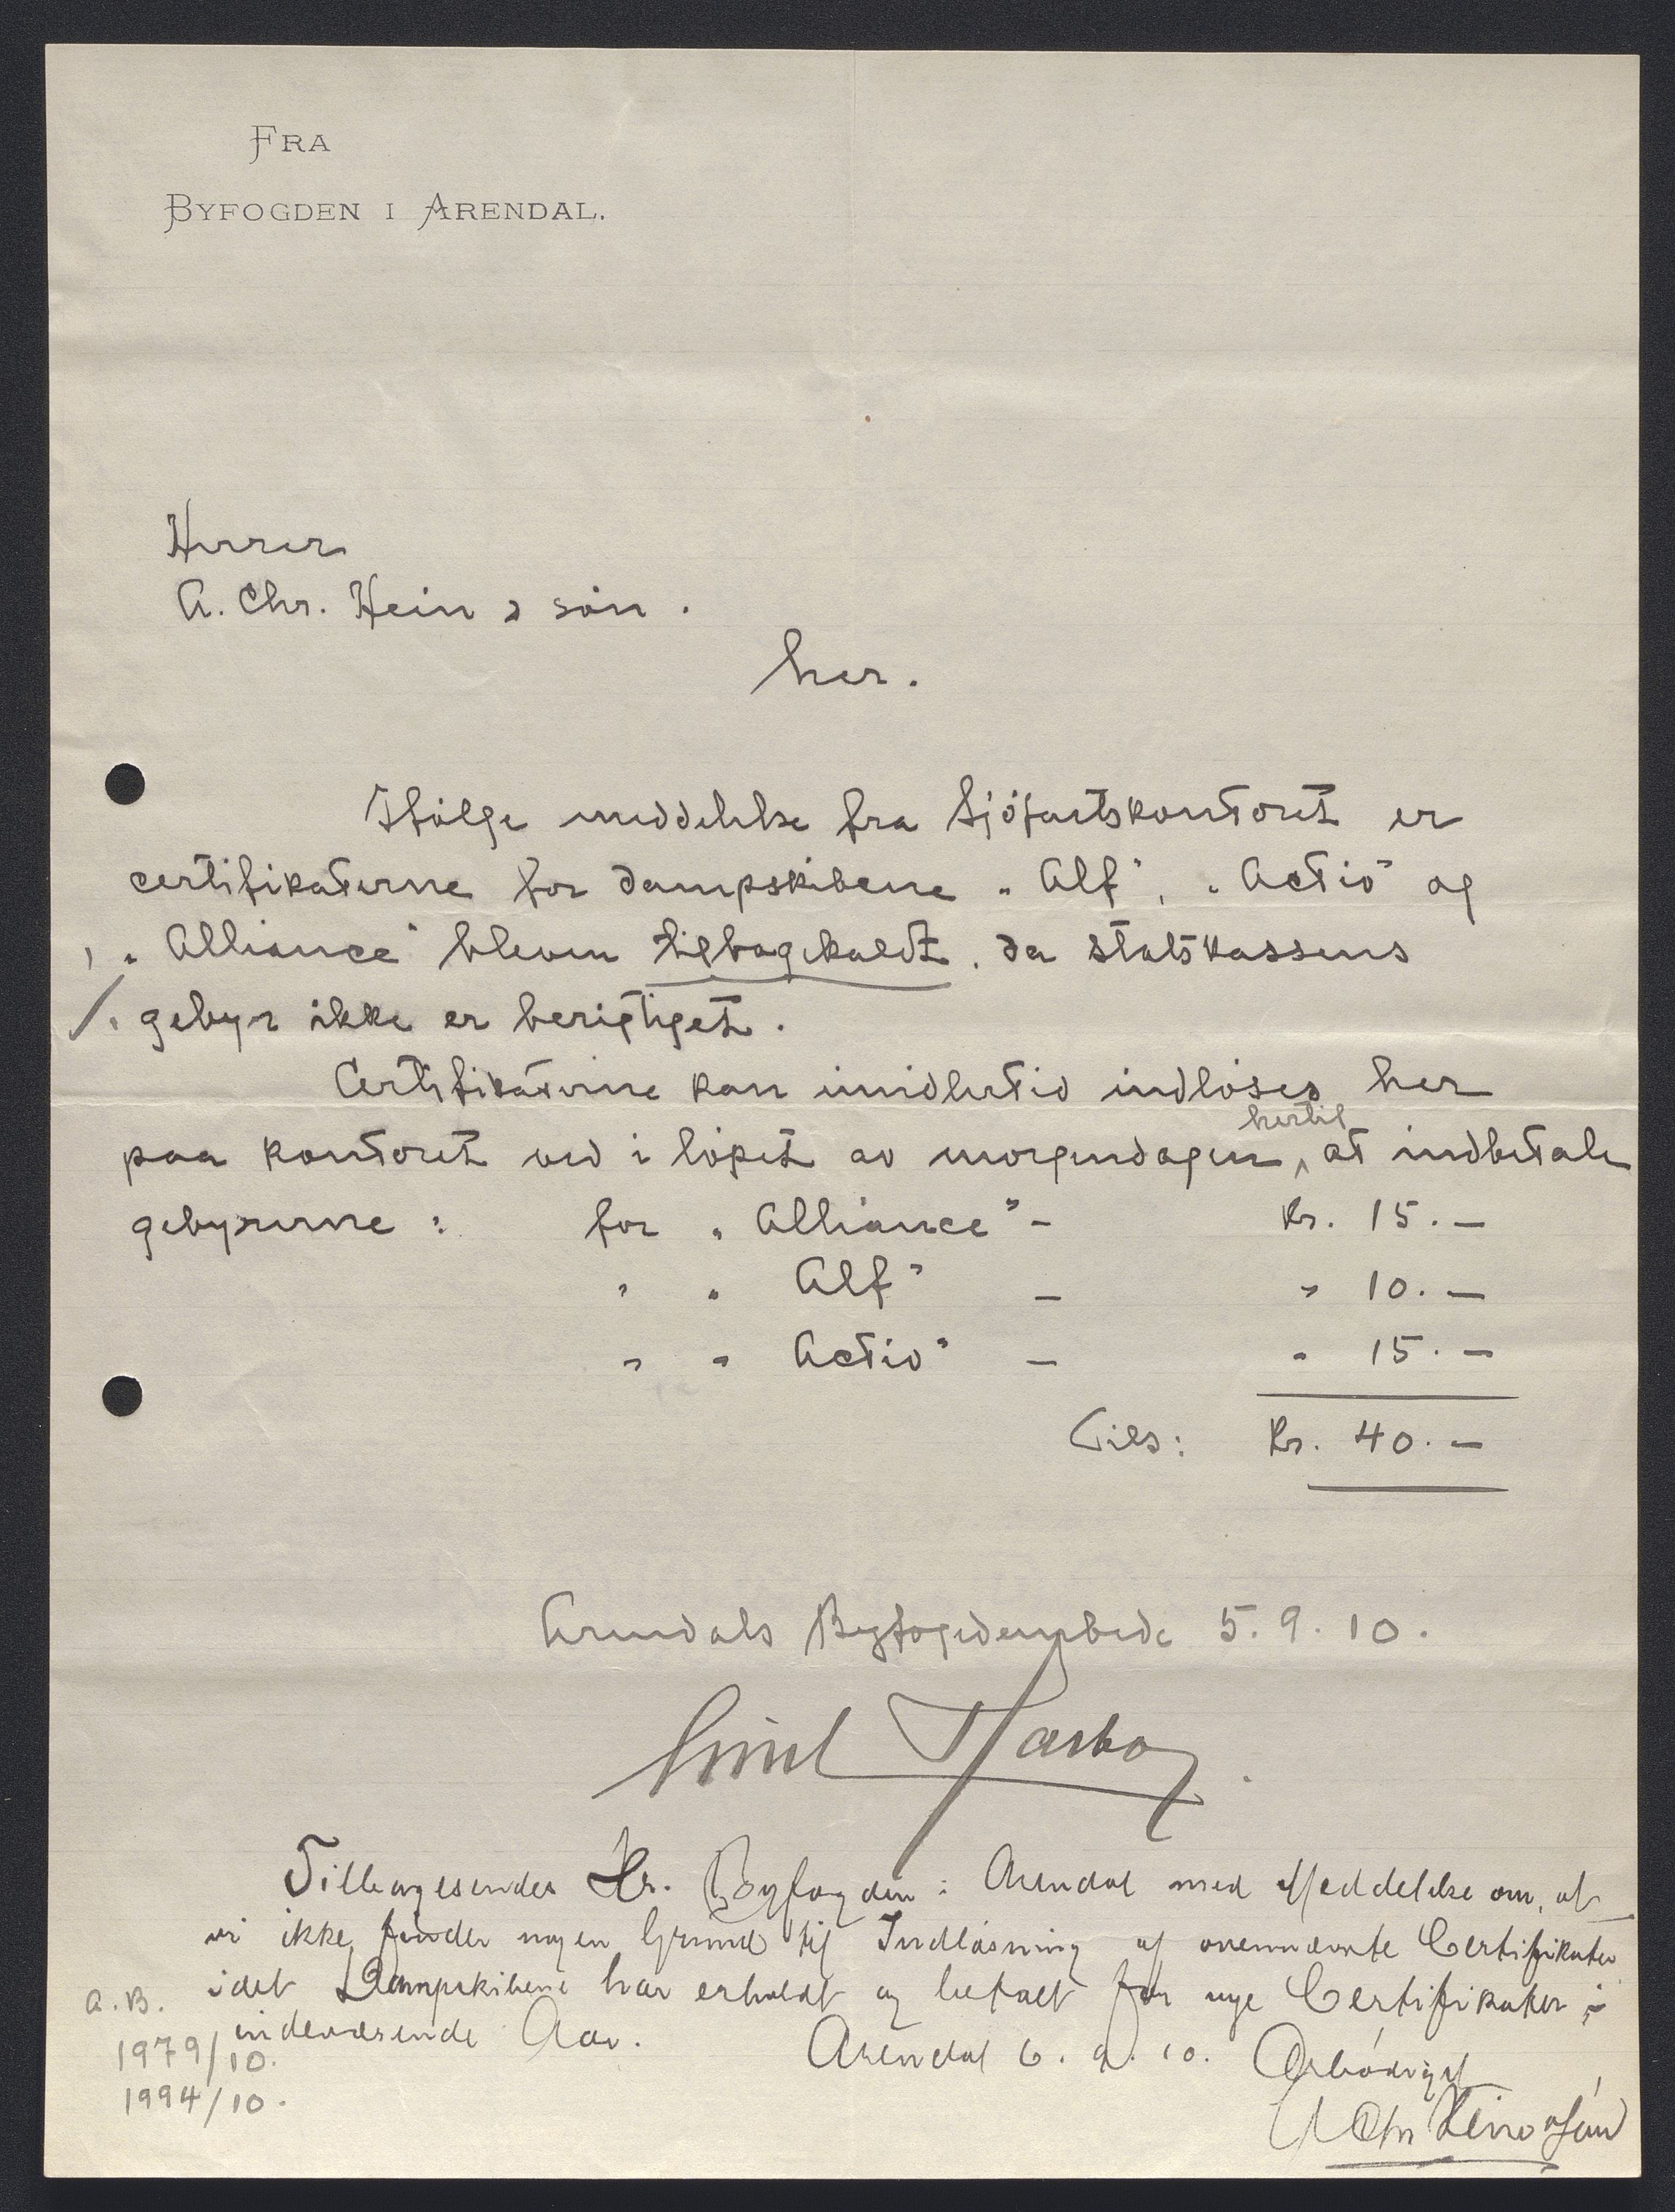 FRA
BYFOGDEN I ARENDAL.
Herrer
A. Chr. Hein & søn.
her.
Ifølge meddelelse fra Sjøfartskontoret er
certifikaterne for dampskibene „Alf", „Activ" og
„Alliance" bleven tilbagekaldt, da statskassens
gebyr ikke er berigtiget.
Certifikaterne kan imidlertid indløses her
paa kontoret ved i løpet av morgendagen hertil at indbetale
gebyrerne: for „Alliance" - Kr. 15.-
" „Alf" - " 10.-
" „Activ" - " 15.-
Tils: Kr. 40.-
Arendals Byfogedembede 5.9.10.
Tilbagesendes Hr. Byfogden i Arendal med Meddelelse om, at
vi ikke finder nogen Grund til Indløsning af ovennævnte Certifikater
idet Dampskibene har erholdt og betalt for nye Certifikater i
indeværende Aar.
Arendal 6.9.10. Ærbødigst
A Chr Hein & Søn
a.B.
1979/10.
1994/10.